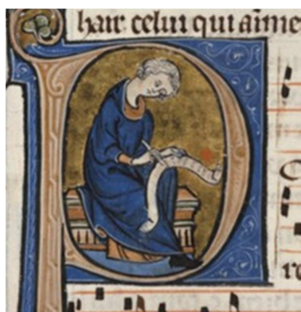 hair celui qui aime
re